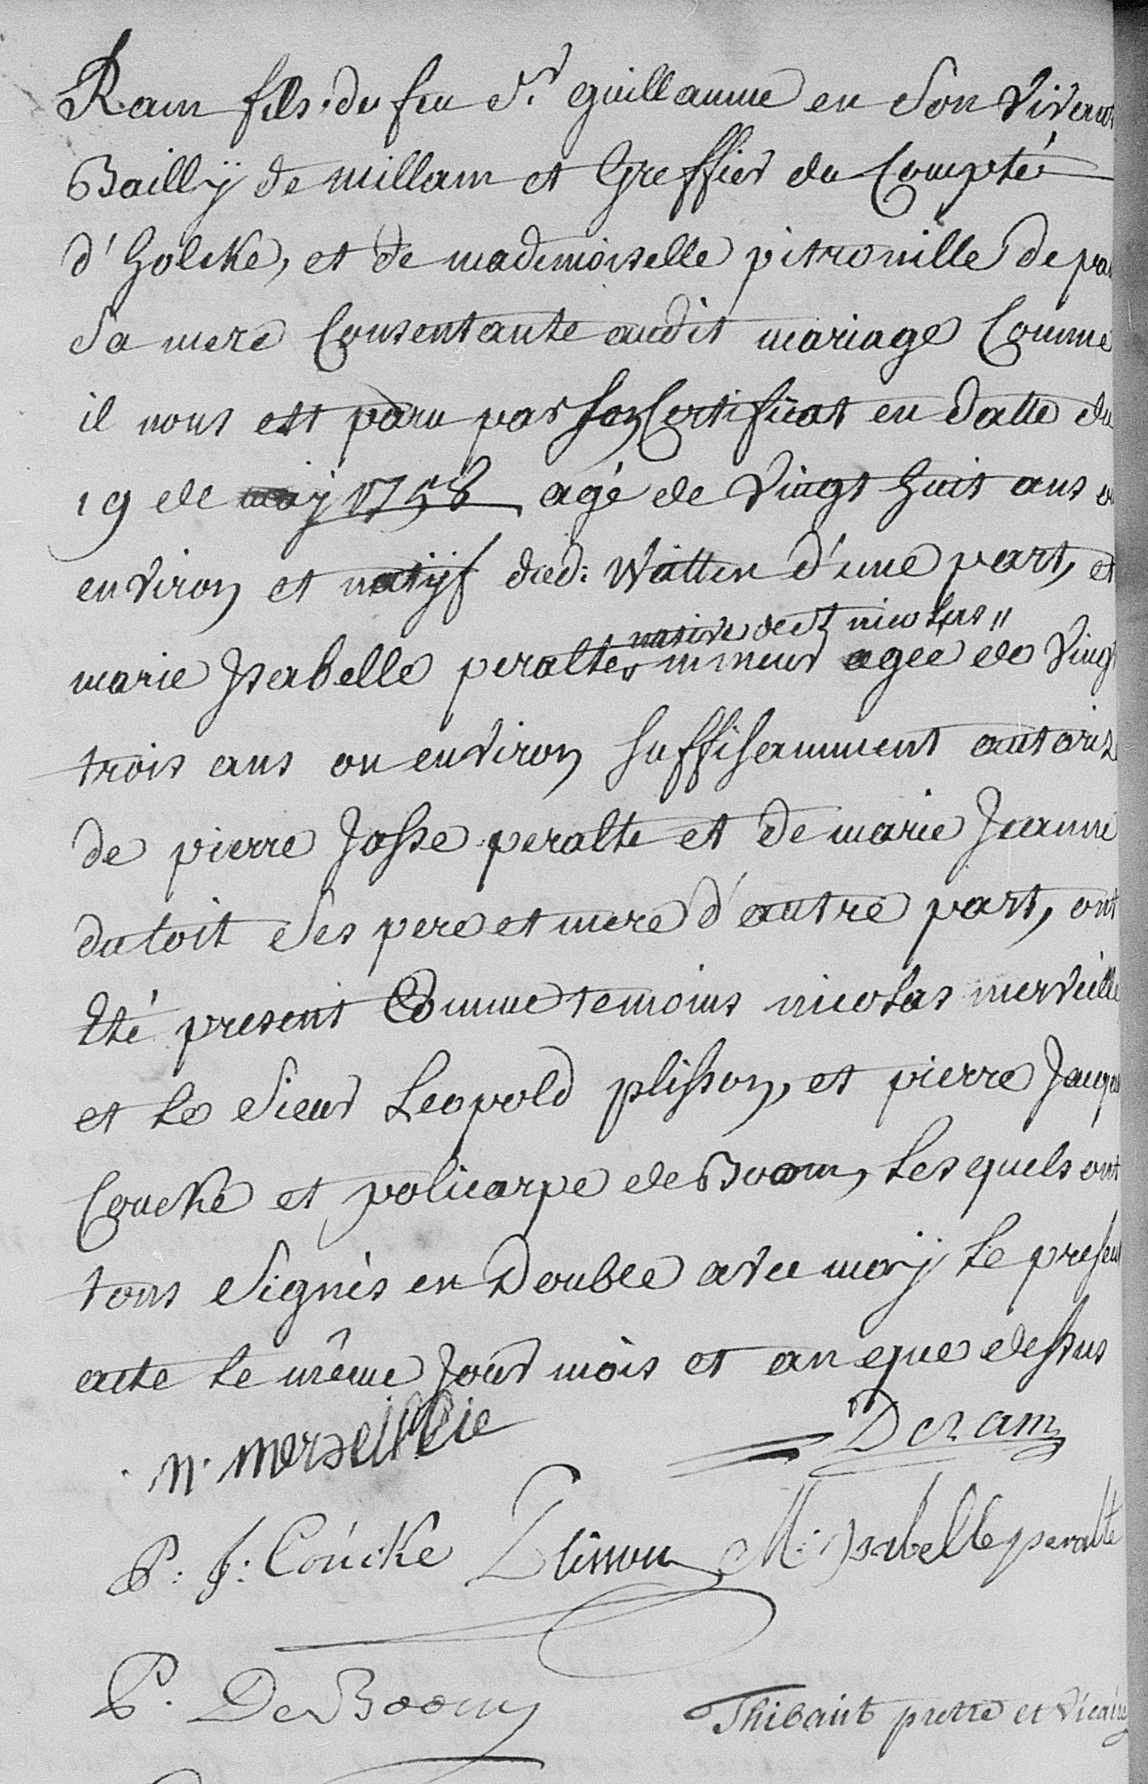 Ram fils du feu Sr guillaume en Son Vivant
Baillÿ de millam et Greffier du Compté
d'holcke, et de mademoiselle pitronille De
Sa mere Consentante audit mariage Comme
il nous est paru par son Certificat en datte du
19 de maÿ 1758 agé de Vingt huit ans ou
environ et natijf dud: Watten d'une part, et
native de st nicolas
marie Isabelle peralte mineur agee de Vingt
trois ans ou environ suffisamment
de pierre Josse peralte et de marie Jeanne
dutoit Ses pere et mere d'autre part, ont
Eté present Comme temoins nicolas merveille
et le Sieur Leopold plisson, et pierre Jacque
Coucke et policarpe de Boom, Lesquels ont
tous Signés en Double avec moÿ le present
acte le même Jour mois et an que dessus
n. merveillie
Deram
P. j: Coucke Plisson M: ysabelle peralte
P. De Boom
Thibaut pretre et Vicaire